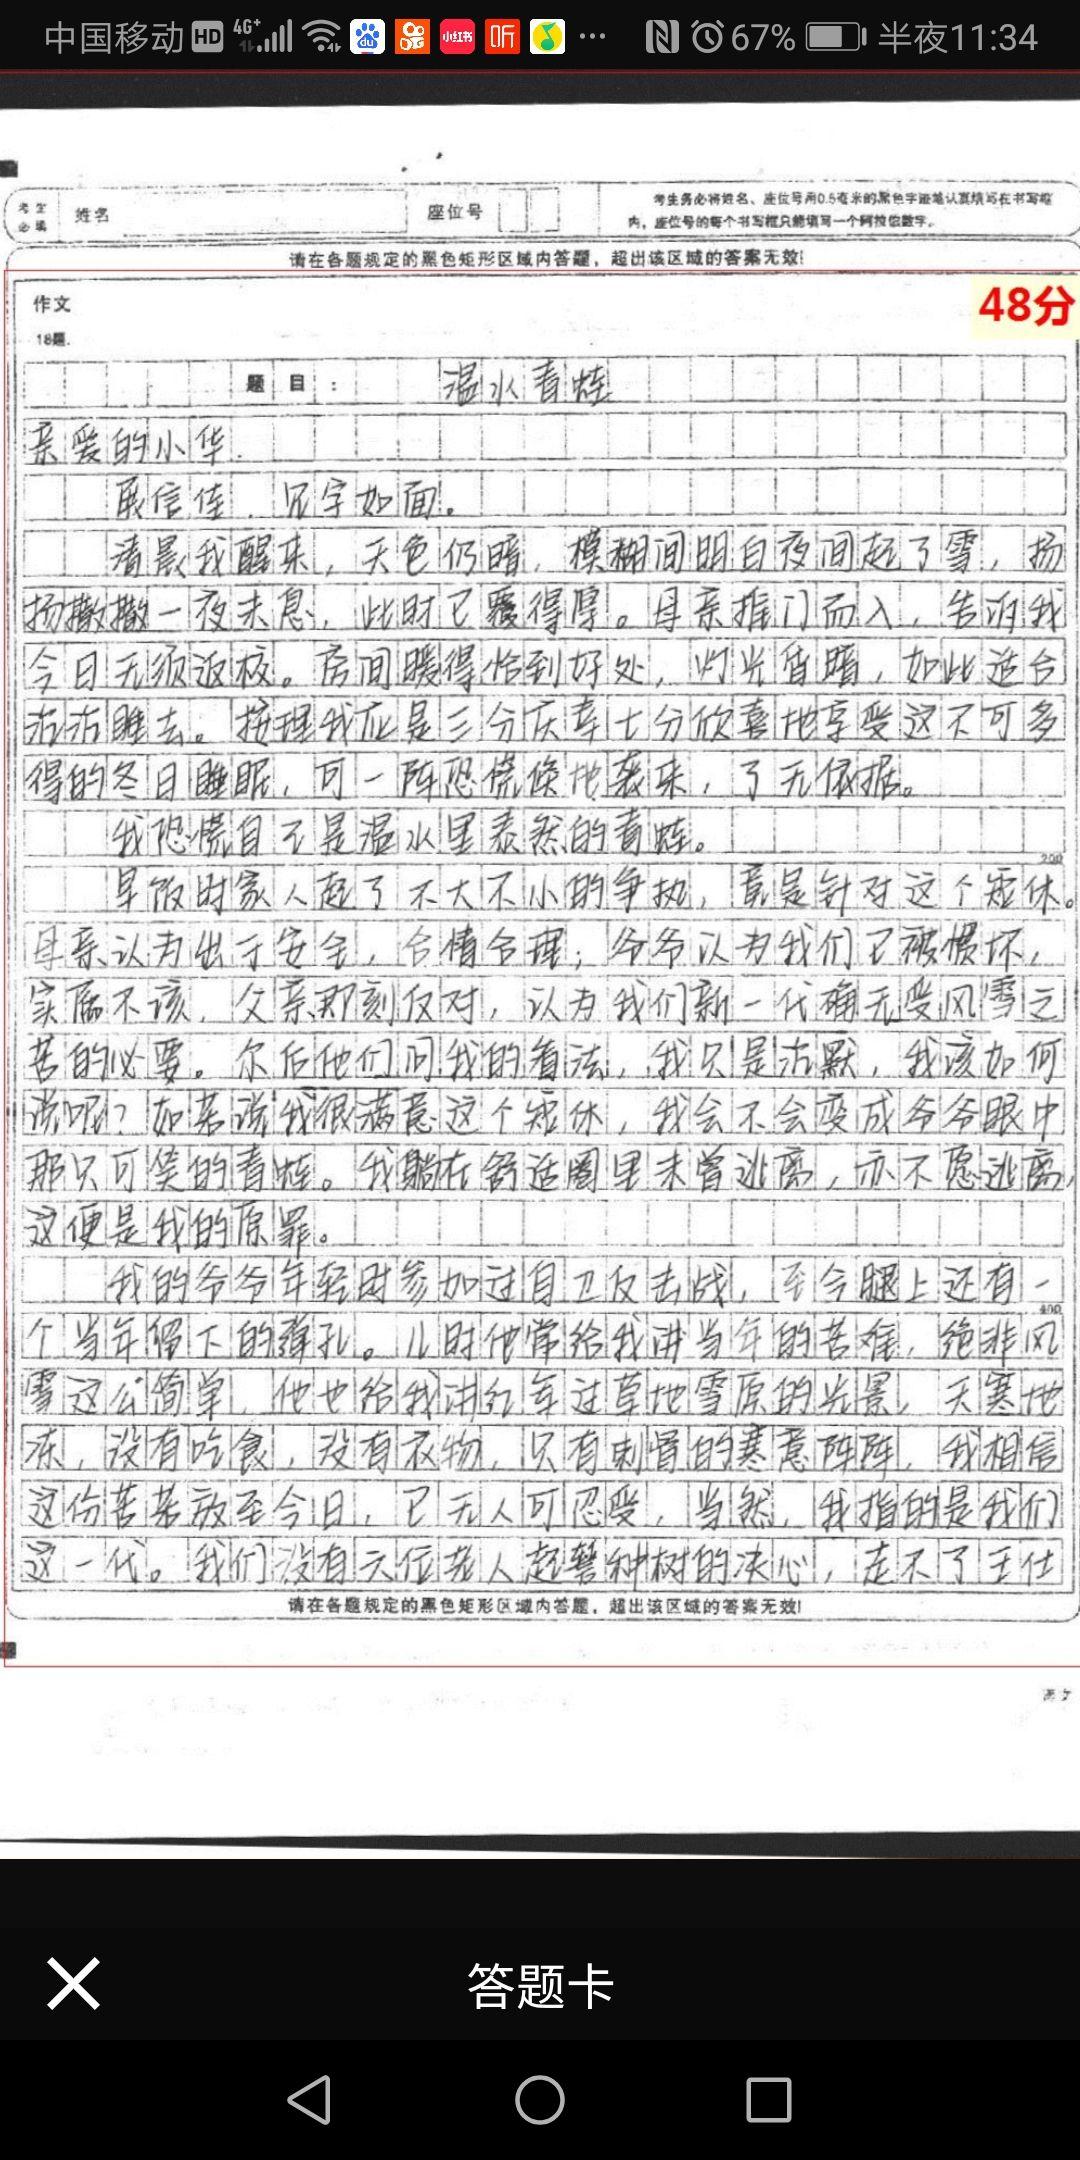 中国移动 HD 4G+ 67% 半夜11:34
考生必填 姓名 座位号 考生务必将姓名、座位号用0.5毫米的黑色字迹笔认真填写在书写框
内，座位号的每个书写框只能填写一个阿拉伯数字。
请在各题规定的黑色矩形区域内答题，超出该区域的答案无效!
作文
48分
18题.
题目： 温水青蛙
亲爱的小华.
展信佳，见字如面。
清晨我醒来，天色仍暗，模糊间明白夜间起了雪，扬
扬撒撒一夜未息，此时已覆得厚。母亲推门而入，告诉我
今日无须返校。房间暖得恰到好处，灯光昏暗，如此适合
沉沉睡去。按理我应是三分庆幸七分欣喜地享受这不可多
得的冬日睡眠，可一阵恐慌倏地袭来，了无依据。
我恐慌自己是温水里泰然的青蛙。
200
早饭时家人起了不大不小的争执，竟是针对这个短休。
母亲认为出于安全，合情合理；爷爷以为我们已被惯坏，
实属不该，父亲即刻反对，认为我们新一代确无受风雪之
苦的必要。尔后他们问我的看法，我只是沉默，我该如何
说呢？如若说我很满意这个短休，我会不会变成爷爷眼中
那只可笑的青蛙。我躺在舒适圈里未曾逃离，亦不愿逃离，
这便是我的原罪。
我的爷爷年轻时参加过自卫反击战，至今腿上还有一
400
个当年留下的弹孔。儿时他常给我讲当年的苦难，绝非风
雪这么简单，他也给我讲红军过草地雪原的光景，天寒地
冻，没有吃食，没有衣物，只有刺骨的寒意阵阵，我相信
这份苦若放至今日，已无人可忍受，当然，我指的是我们
这一代。我们没有六位老人起誓种树的决心，走不了王仕
请在各题规定的黑色矩形区域内答题，超出该区域的答案无效!
语文
答题卡